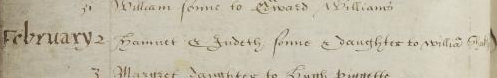 31 William sonne to Edward Williams
February 2 Hamnet & Judeth sonne & daughter to Willia Shak
3 Margret daughter to Hugh Piggette